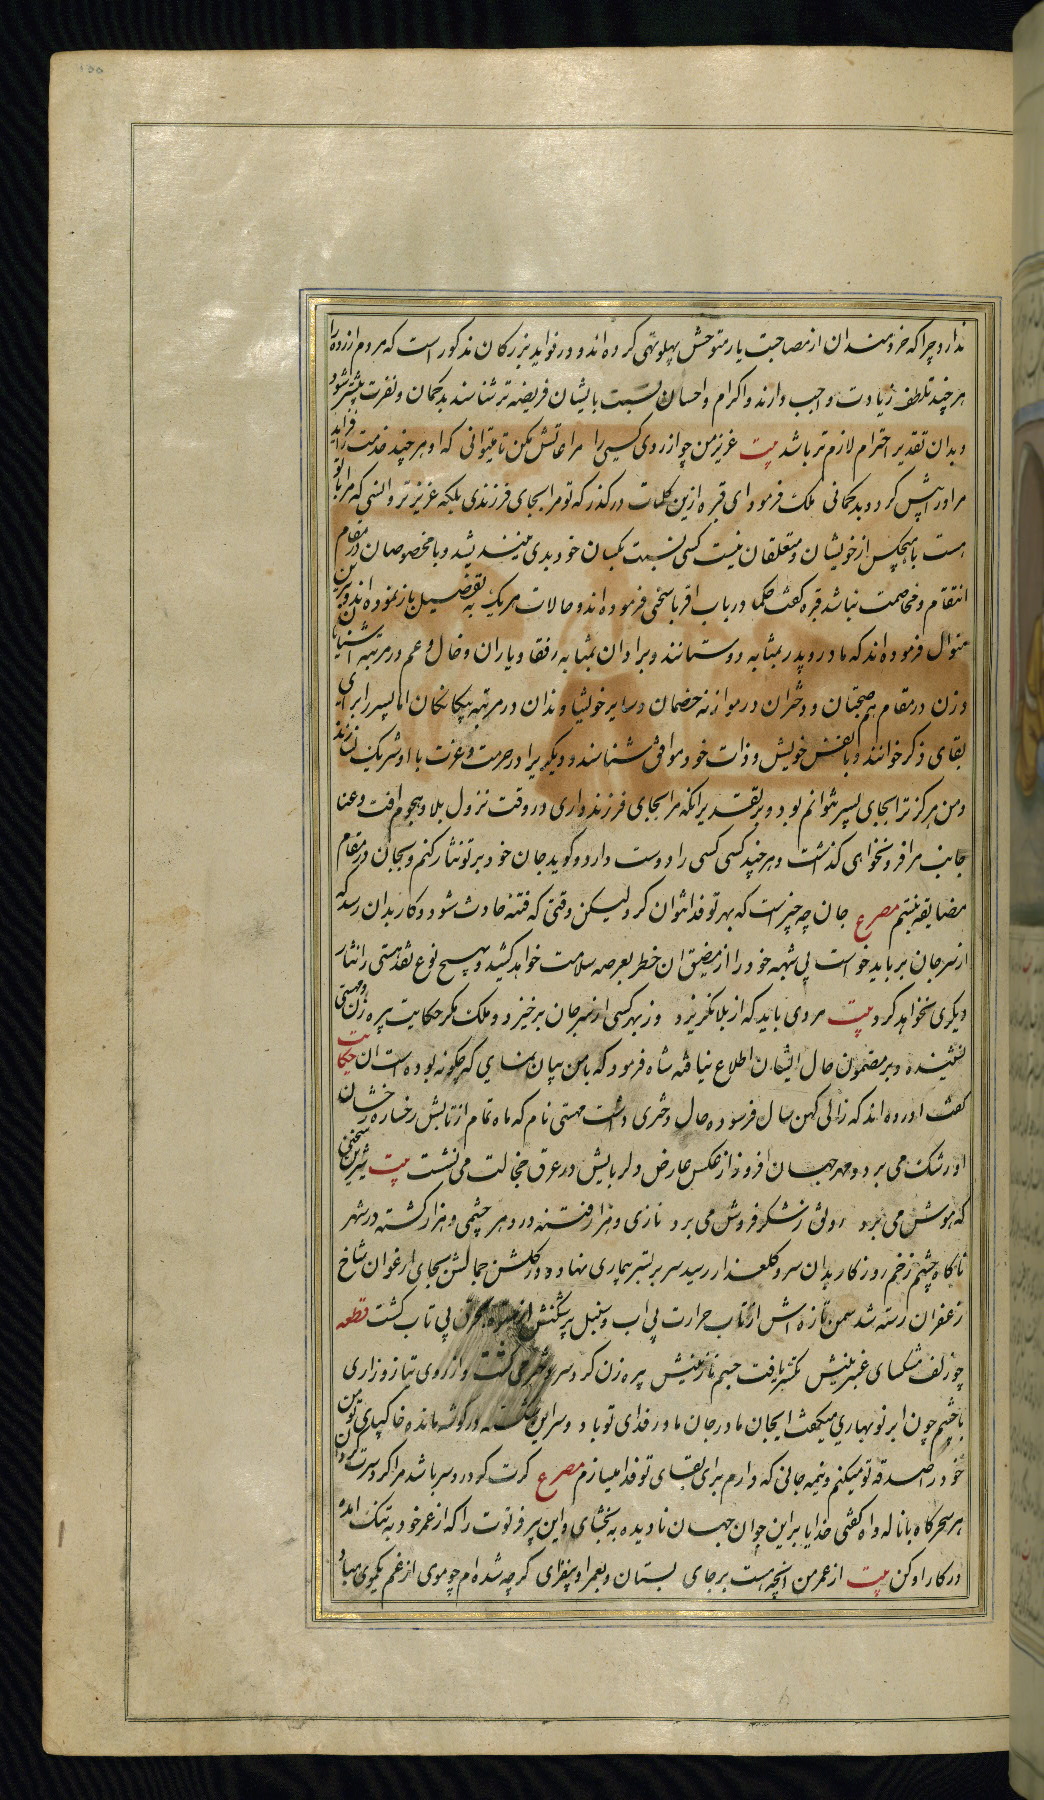 ندارد چرا که خردمندان از مصاحبت یار متوحش پهلو تهی کرده‌اند و در فواید بزرگان مذکور است که مردم آزرده را
هر چند تلطف زیادت واجب دارند و اکرام و احسان نسبت بایشان فریضه تر شناسند بدگمان و نفرت بیشتر شود
و بدان تقدیر احترام لازم تر باشد بیت عزیز من چو آزردی کسی را مراعاتش مکن تا میتوانی که او هر چند خدمت را فزاید
مر او را بیش گردد بدگمانی ملک فرمود ای قبره ازین کلمات درگذر که تو مرا بجای فرزندی بلکه عزیزتر و انسی که مرا با تو
هست با هیچکس از خویشان و متعلقان نیست کسی نسبت بکسان خود بدی نیندیشد و با مخصوصان در مقام
انتقام و مخاصمت نباشد قبره گفت حکما در باب اقربا سخنی فرموده‌اند و حالات هر یک به تفضیل باز نموده‌اند و برین
منوال فرموده‌اند که مادر و پدر بمثابه دوستانند و برادران بمثابه رفقا و یاران و خال و عم در مرتبه آشنایان
و زن در مقام هم صحبتان و دختران در موازنه خصمان و سایر خویشاوندان در مرتبه بیگانگان اما پسر را برای
بقای ذکر خوانند و با نفس خویش و ذات خود موافق شناسند و دیگریرا در حرمت و عزت با او شریک نسازند
و من هرگز ترا بجای پسر نتوانم بود و بر تقدیر آنکه مرا بجای فرزند داری در وقت نزول بلا و هجوم آفت و عنا
جانب مرا فرو نخواهی گذاشت و هر چند کسی کسی را دوست دارد و گوید جان خود بر تو نثار کنم و بجان در مقام
مضایقه نیستم مصرع جان چه چیزست که بهر تو فدا نتوان کرد لیکن وقتی که فتنه حادث شود و کار بدان رسد که
از سر جان بر باید خواست بی شبهه خود را از مضیق آن خطر بعرصه سلامت خواهد کشید و بهیچ نوع نقد هستی را نثار
دیگری نخواهد کرد بیت مردی باید که از بلا نگریزد وز بهر کسی از سر جان برخیزد و ملک مگر حکایت پیره زن و مهستی
نشنیده و بر مضمون حال ایشان اطلاع نیافته شاه فرمود که با من بیان نمای که چگونه بوده است آن حکایت
گفت آورده‌اند که زالی کهن سال فرسوده حال دختری داشت مهستی نام که ماه تمام از تابش رخساره رخشان
او رشک می برد و مهر جهان افروز از عکس عارض دلربایش در عرق خجالت می نشست بیت شیرین سخنی
که هوش می برد رونق ز شکر فروش می برد نازی و هزار فتنه در دهر چشمی و هزار کشته در شهر
ناگاه چشم زخم روزگار بدان سرو گلعذار رسید سر بر بستر بیماری نهاد و در گلشن جمالش بجای ارغوان شاخ
زعفران رسته شد سمن تازه اش از تاب حرارت بی آب و سنبل پرشکنش از بی تاب گشت قطعه
چو زلف مشکسای عنبرینش نکستر یافت جسم نازنینش پیره زن گرد سر دختر می گشت و از روی نیاز و زاری
با چشم چون ابر نوبهاری میگفت ای جان مادر جان مادر فدای تو باد و سر این در گوشه مانده خاک پای تو من
خود را صدقه تو میکنم و نیمه جانی که دارم برای بقای تو فدا میسازم مصرع گرت که درد سر باشد مرا گرد سرت گردان
هر سحرگاه با ناله و آه گفتی خدایا براین جوان جهان نادیده به بخشای و این پیر فرتوت را که از عمر خود به تنگ آمده
در کار او کن بیت از عمر من آنچه هست بر جای بستان و بعمر او بیفزای گر چه شده‌ام چو موی از غم یکموی مباد